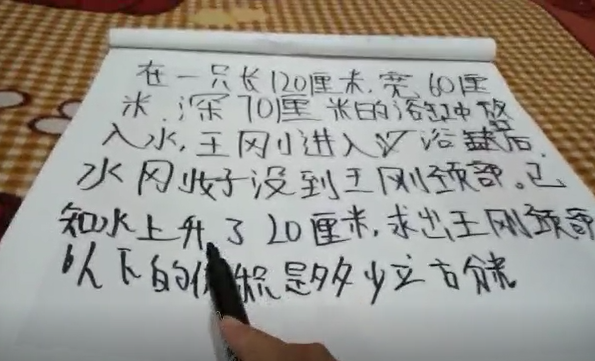 在一只长120厘米,宽60厘
米,深70厘米的浴缸中放
入水,王刚进入浴缸后,
水刚好没到王刚颈部。已
知水上升了20厘米,求出王刚颈部
以下的体积是多少立方分米